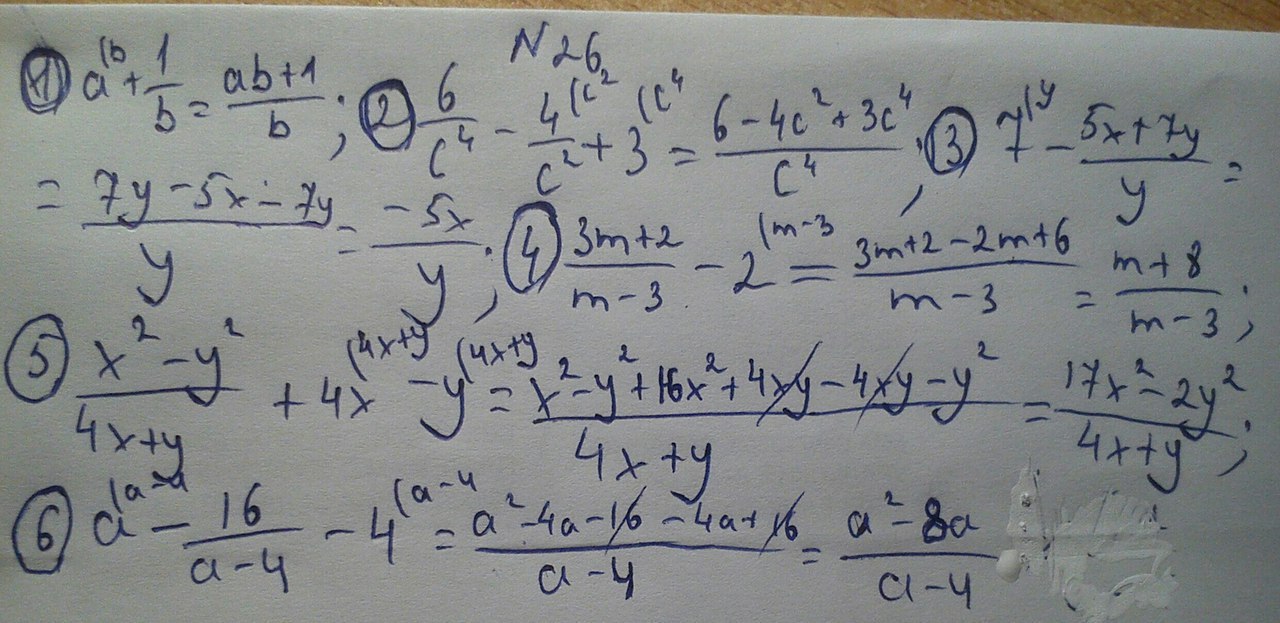 N 26
① a^(b + 1/b = (ab+1)/b; ② 6/c^4 - 4^(c^2/c^2 + 3^(c^4 = (6-4c^2+3c^4)/c^4; ③ 7^(y - (5x+7y)/y =
= (7y-5x-7y)/y = -5x/y; ④ (3m+2)/(m-3) - 2^(m-3 = (3m+2-2m+6)/(m-3) = (m+8)/(m-3);
⑤ (x^2-y^2)/(4x+y) + 4x^(4x+y - y^(4x+y = (x^2-y^2+16x^2+4xy-4xy-y^2)/(4x+y) = (17x^2-2y^2)/(4x+y);
⑥ a^(a-4 - 16/(a-4) - 4^(a-4 = (a^2-4a-16-4a+16)/(a-4) = (a^2-8a)/(a-4)